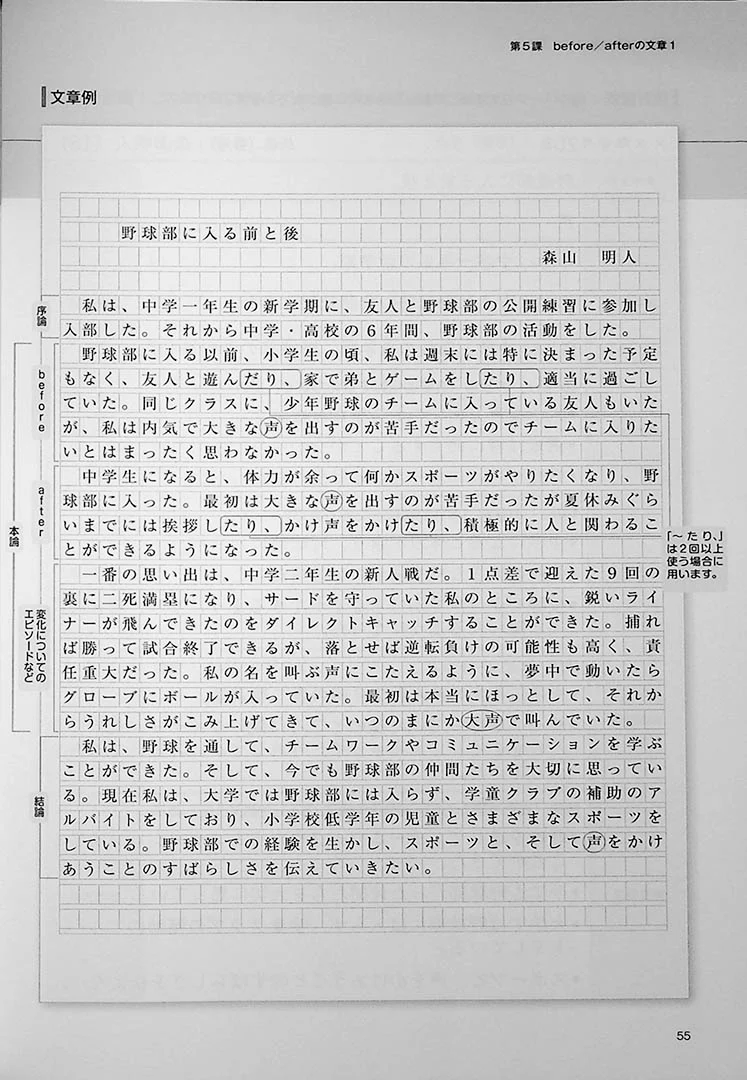 第5課 before／afterの文章1
文章例
野球部に入る前と後
森山 明人
序論
私は、中学一年生の新学期に、友人と野球部の公開練習に参加し
入部した。それから中学・高校の6年間、野球部の活動をした。
本論
before
野球部に入る以前、小学生の頃、私は週末には特に決まった予定
もなく、友人と遊んだり、家で弟とゲームをしたり、適当に過ごし
ていた。同じクラスに、少年野球のチームに入っている友人もいた
が、私は内気で大きな声を出すのが苦手だったのでチームに入りた
いとはまったく思わなかった。
after
中学生になると、体力が余って何かスポーツがやりたくなり、野
球部に入った。最初は大きな声を出すのが苦手だったが夏休みぐら
いまでには挨拶したり、かけ声をかけたり、積極的に人と関わるこ
とができるようになった。
「～たり、」
は2回以上
使う場合に
用います。
変化についての
エピソードなど
一番の思い出は、中学二年生の新人戦だ。1点差で迎えた9回の
裏に二死満塁になり、サードを守っていた私のところに、鋭いライ
ナーが飛んできたのをダイレクトキャッチすることができた。捕れ
ば勝って試合終了できるが、落とせば逆転負けの可能性も高く、責
任重大だった。私の名を叫ぶ声にこたえるように、夢中で動いたら
グローブにボールが入っていた。最初は本当にほっとして、それか
らうれしさがこみ上げてきて、いつのまにか大声で叫んでいた。
結論
私は、野球を通して、チームワークやコミュニケーションを学ぶ
ことができた。そして、今でも野球部の仲間たちを大切に思ってい
る。現在私は、大学では野球部には入らず、学童クラブの補助のア
ルバイトをしており、小学校低学年の児童とさまざまなスポーツを
している。野球部での経験を生かし、スポーツと、そして声をかけ
あうことのすばらしさを伝えていきたい。
55